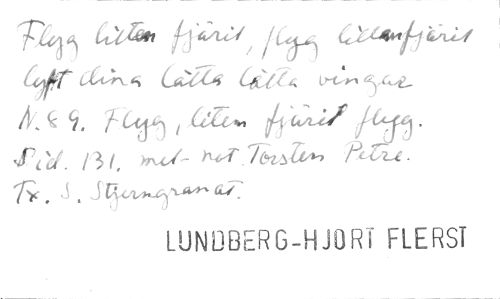 Flyg litten fjäril, flyg littenfjäril
lyft dina lätta lätta vingar
N.89. Flyg, liten fjäril flyg.
Sid. 131. mel- not. Torsten Petre.
Tx. S. Stjerngranat.
LUNDBERG-HJORT FLERST